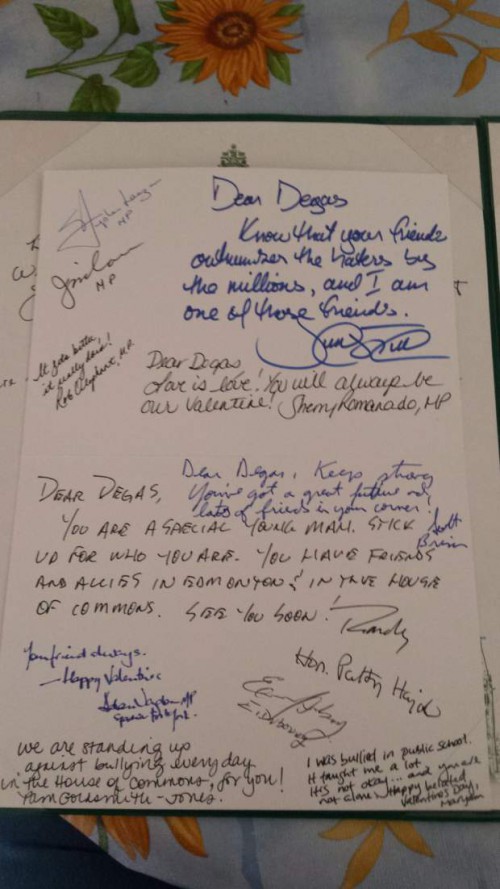 MP
MP
Dear Degas
Know that your friends
outnumber the haters by
the millions, and I am
one of those friends.
It gets better,
it really does!
Rob Oliphant, MP
Dear Degas
Love is love! You will always be
our Valentine! Sherry Romanado, MP
Dear Degas, Keep strong
You've got a great future and
lots of friends in your corner!
Scott
Brison
DEAR DEGAS,
YOU ARE A SPECIAL YOUNG MAN. STICK
UP FOR WHO YOU ARE. YOU HAVE FRIENDS
AND ALLIES IN EDMONTON & IN THE HOUSE
OF COMMONS. SEE YOU SOON!
Randy
Your friend always.
—Happy Valentine
MP
Hon. Patty Hajdu
we are standing up
against bullying everyday
in the House of Commons, for you!
Pam Goldsmith-Jones.
I was bullied in public school.
It taught me a lot
It's not okay... and you are
not alone. Happy belated
Valentine's Day,
Maryam